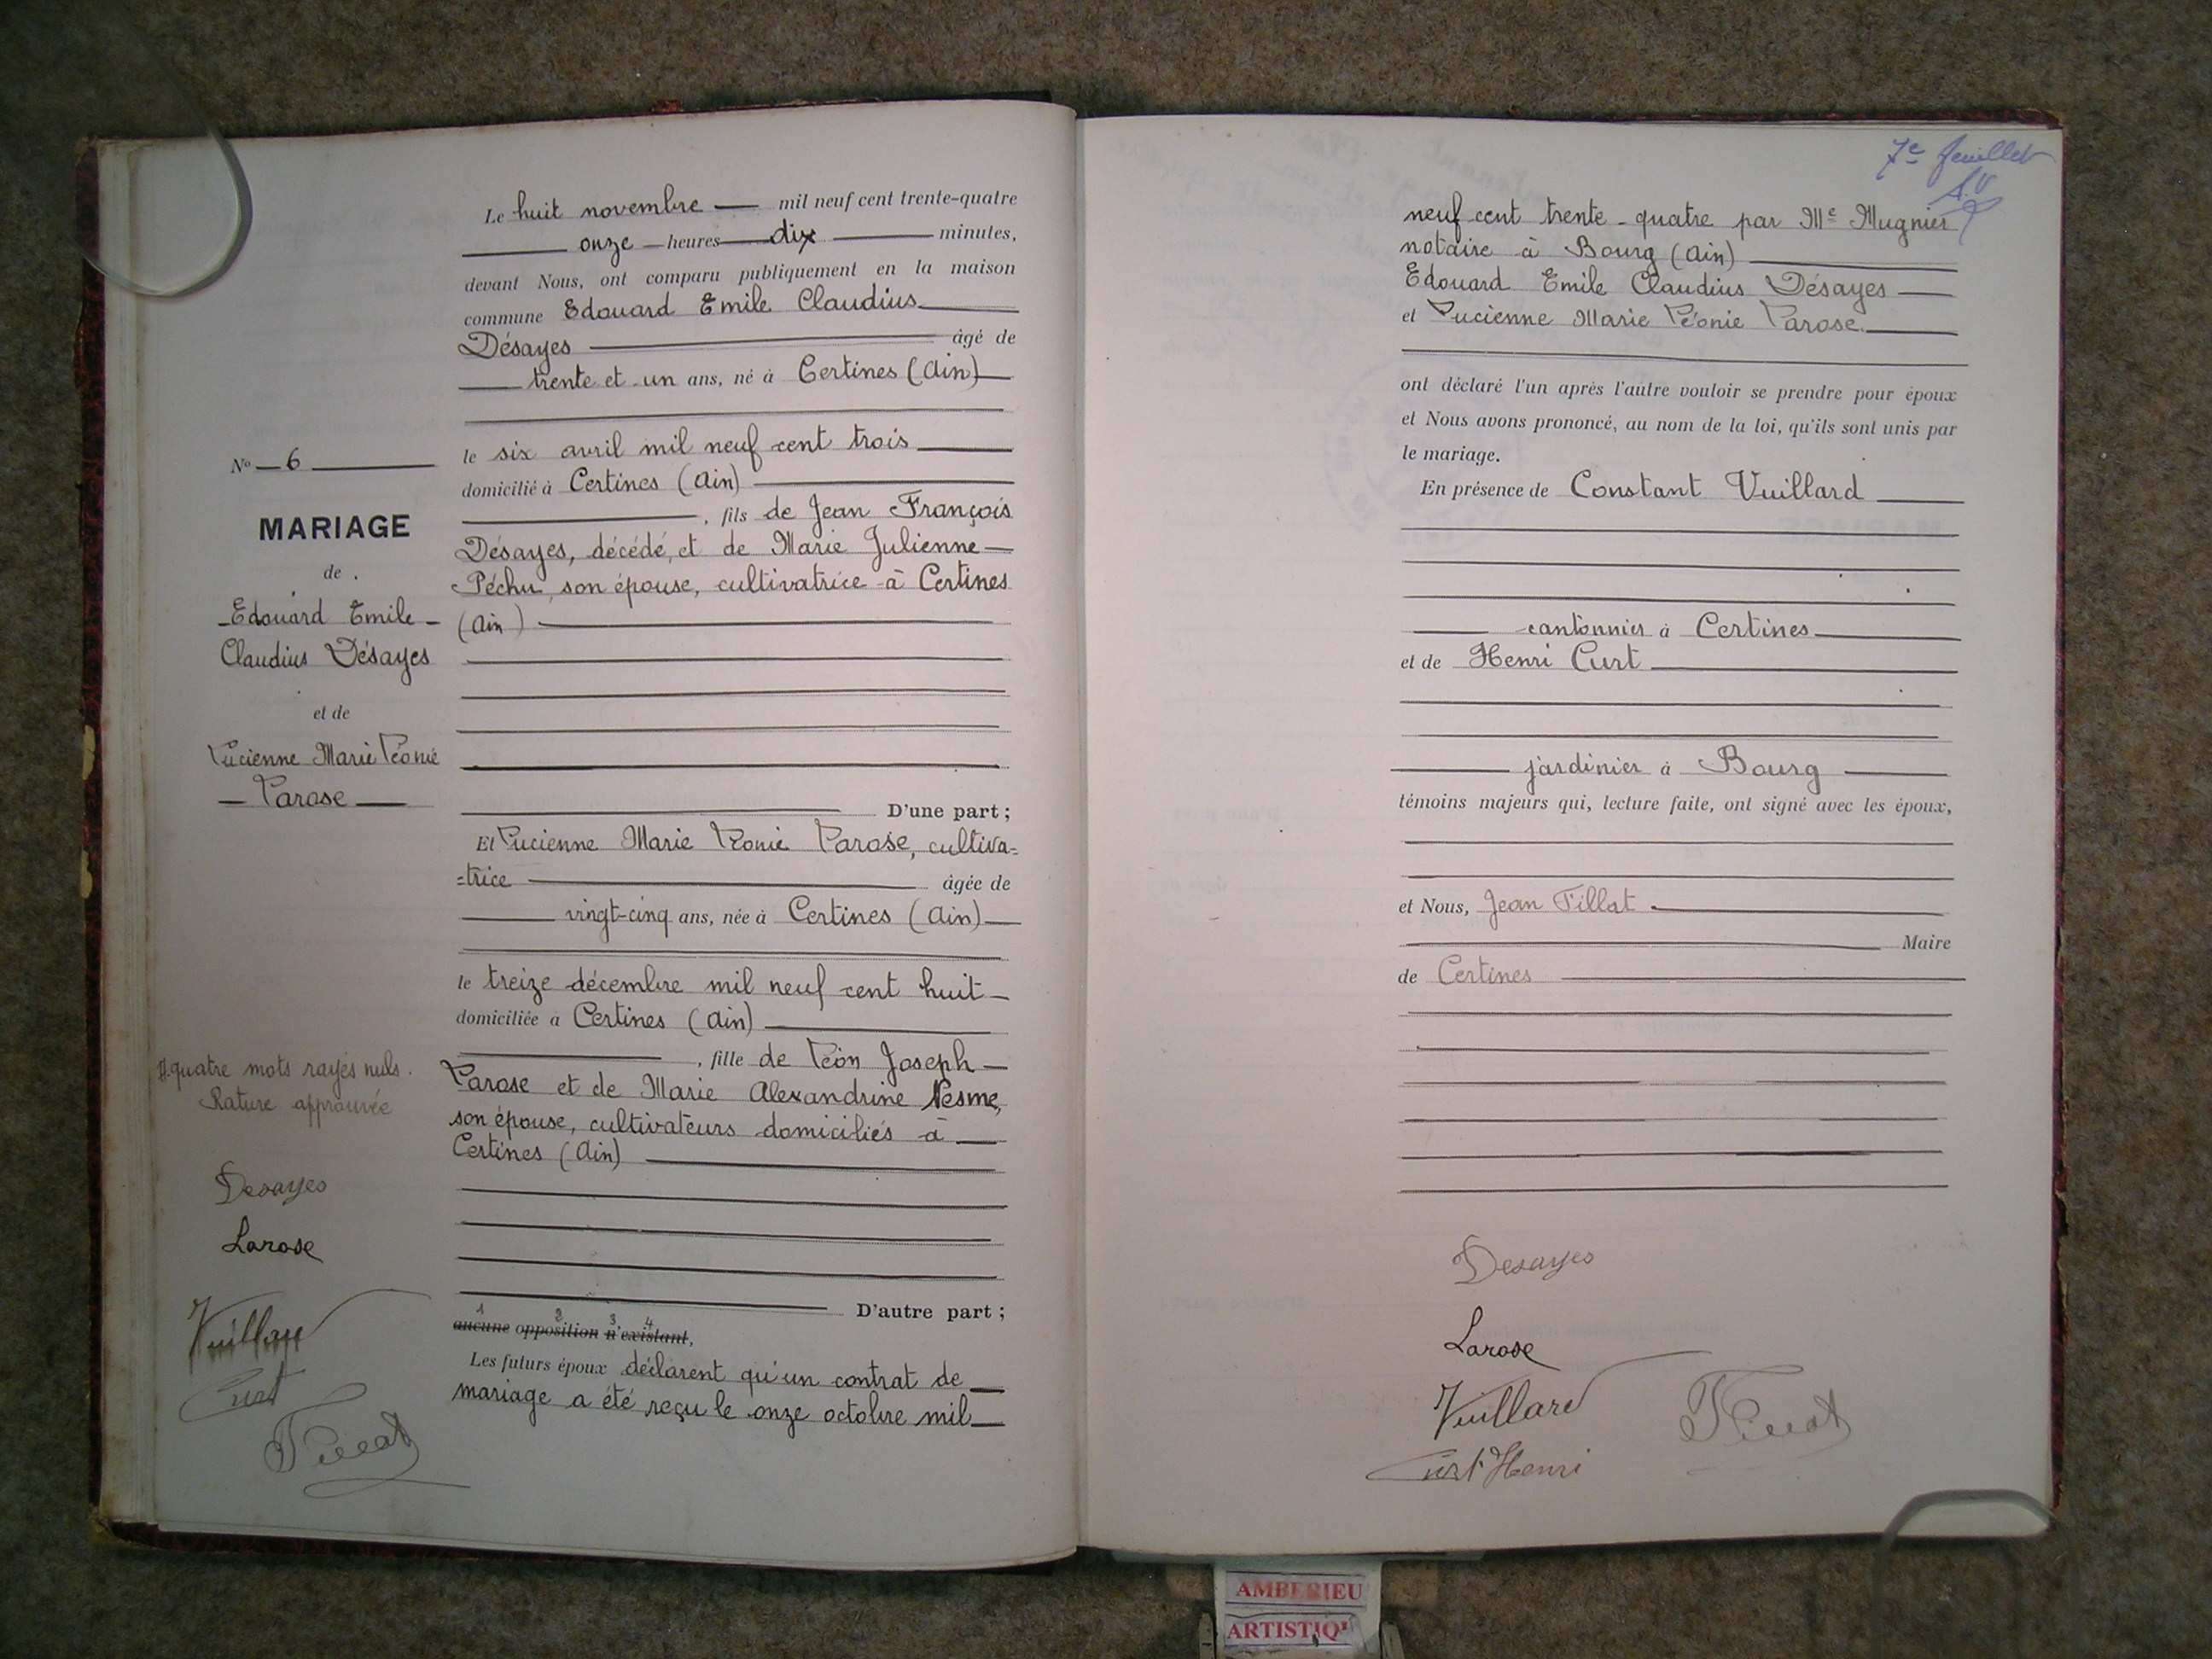 N° 6
MARIAGE
de
Edouard Emile
Claudius Désayes
et de
Lucienne Marie Léonie
Larose
quatre mots rayés nuls.
Rature approuvée
Desayes
Larose
Vuillard
Curt
Le huit novembre mil neuf cent trente-quatre
onze heures dix minutes,
devant Nous, ont comparu publiquement en la maison
commune Edouard Emile Claudius
Désayes âgé de
trente et un ans, né à Certines (Ain)
le six avril mil neuf cent trois
domicilié à Certines (Ain)
, fils de Jean François
Désayes, décédé, et de Marie Julienne
Péchu, son épouse, cultivatrice à Certines
(Ain)
D'une part ;
Et Lucienne Marie Léonie Larose, cultiva=
=trice âgée de
vingt-cinq ans, née à Certines (Ain)
le treize décembre mil neuf cent huit
domiciliée à Certines (Ain)
, fille de Léon Joseph
Larose et de Marie Alexandrine Nesme,
son épouse, cultivateurs domiciliés à
Certines (Ain)
D'autre part ;
1 2 3 4
aucune opposition n'existant,
Les futurs époux déclarent qu'un contrat de
mariage a été reçu le onze octobre mil
7e feuillet
neuf cent trente-quatre par Me Mugnier
notaire à Bourg (Ain)
Edouard Emile Claudius Désayes
et Lucienne Marie Léonie Larose.
ont déclaré l'un après l'autre vouloir se prendre pour époux
et Nous avons prononcé, au nom de la loi, qu'ils sont unis par
le mariage.
En présence de Constant Vuillard
cantonnier à Certines
et de Henri Curt
jardinier à Bourg
témoins majeurs qui, lecture faite, ont signé avec les époux,
et Nous, Jean Tillat
Maire
de Certines
Desayes
Larose
Vuillard
Curt Henri
AMBERIEU
ARTISTIQ